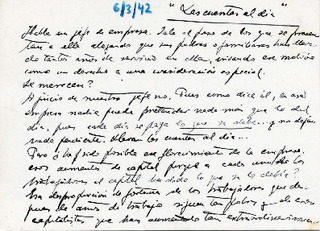 6/3/42
"Las cuentas al día"
Habla un jefe de empresa. Sale al paso de los que se presen-
tan a ella alegando que sus padres o familiares han lleva-
do tantos años de servicio en ella, mirando ese motivo
como un derecho a una consideración especial.
Le merecen?
A juicio de nuestro jefe no. Pues como dice él, en esa
empresa nadie puede pretender nada más que lo del
día, pues cada día se paga lo que se debe... y no dejan
nada pendiente. Llevan las cuentas al día...
Pero ¿ha sido posible ese florecimiento de la empresa,
esos aumentos de capital porque a cada uno de los
trabajadores el capital ha dado lo que se le debía?
Esa desproporción de fortuna de los trabajadores que des-
pués de años de trabajo siguen tan pobres y de esos
capitalistas que han aumentado tan extraordinariamen-